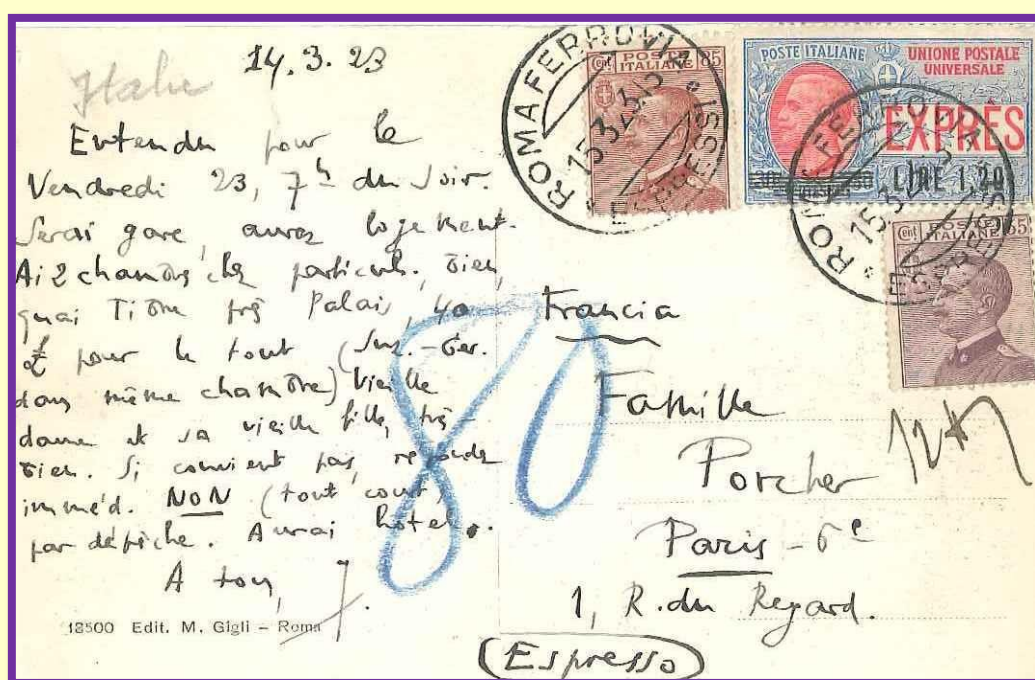 Italie
14.3.23
Entendu pour le
Vendredi 23, 7h du soir.
Serai gare, aurez logement.
Ai 2 chambres chez particul. bien,
quai Tibre près Palais, 40
£ pour le tout (Suz.-Ger.
dans même chambre) Vieille
dame et sa vieille fille, très
bien. Si convient pas, répondez
imméd. NON (tout court)
par dépêche. Aurai hotel.
A tous,
J.
12500 Edit. M. Gigli – Roma
80
ROMA FERROVIA
ESPRESSI
15 3 23
Cent POSTE ITALIANE 85
POSTE ITALIANE
UNIONE POSTALE
UNIVERSALE
EXPRÈS
LIRE 1,20
ROMA FERROVIA
ESPRESSI
Cent POSTE ITALIANE 65
Francia
Famille
Porcher
Paris - 6e
1, R. du Regard.
(Espresso)